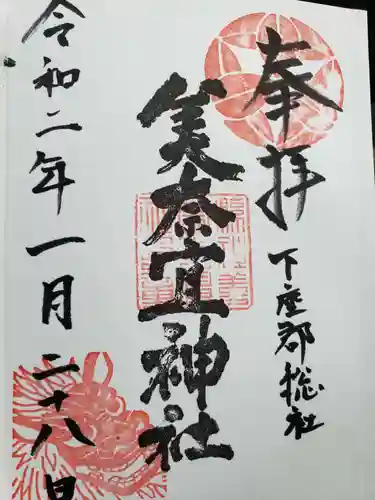 奉拝
下座郡総社
美奈宜神社
令和二年一月二十八日